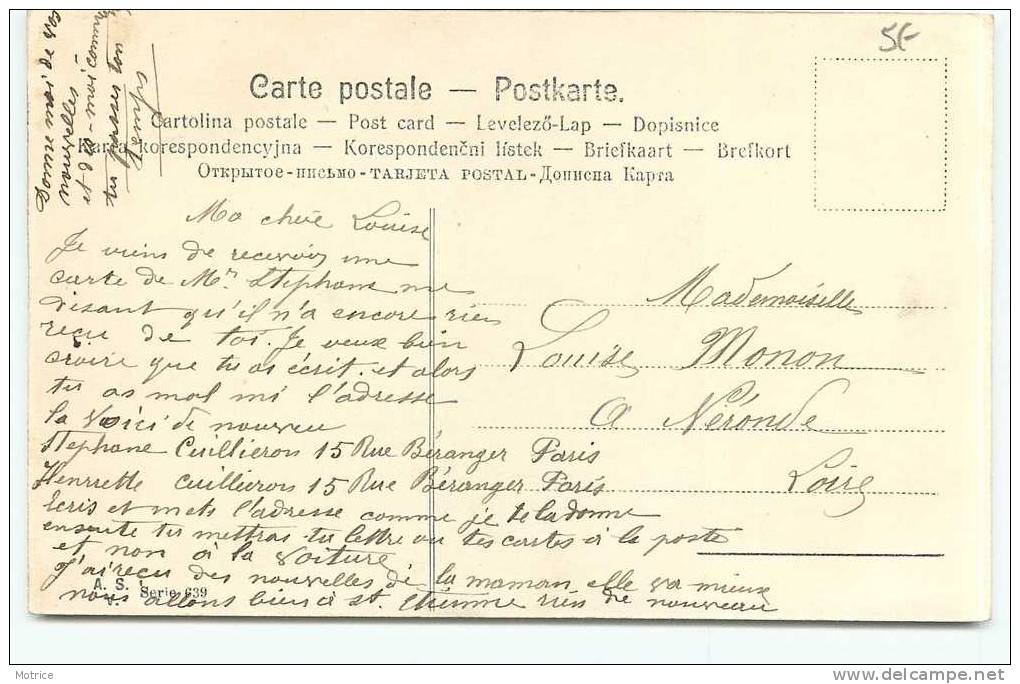 5€
Carte postale — Postkarte.
Cartolina postale — Post card — Levelező-Lap — Dopisnice
Karta korespondencyjna — Korespondenční lístek — Briefkaart — Brefkort
Открытое-письмо-TARJETA POSTAL-Дописна Карта
Ma chère Louise
Je viens de recevoir une
carte de Mr Stéphane me
disant qu'il n'a encore rien
reçu de toi. Je veux bien
croire que tu as écrit. et alors
tu as mal mi l'adresse
la voici de nouveau
Stephane Cuillieron 15 Rue Béranger Paris
Henriette Cuillieron 15 Rue Béranger Paris
Ecris et mets l'adresse comme je te la donne
ensuite tu mettras ta lettre ou tes cartes à la poste
et non à la voiture
J'ai reçu des nouvelles de la maman, elle va mieux
nous allons bien à St. Etienne rien de nouveau
Donne moi de tes
nouvelles
et dis-moi comment
vos
Mademoiselle
Louise Monon
à Néronde
Loire
A. S. Serie 639
Motrice
delcampe.net